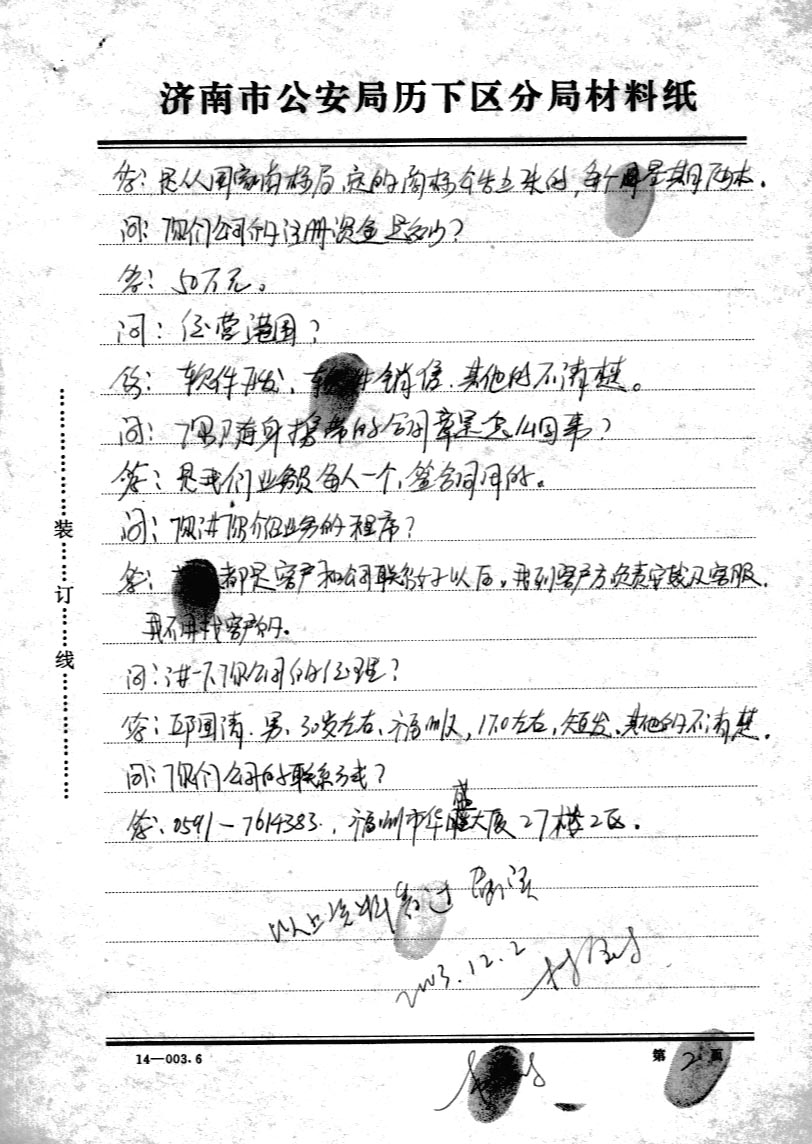 济南市公安局历下区分局材料纸
答：是从国家商标局定的商标公告上来的，每个星期两本。
问：你们公司的注册资金是多少？
答：50万元。
问：经营范围？
答：软件开发、软件销售、其他的不清楚。
问：你随身携带的合同章是怎么回事？
答：是我们业务员每人一个，签合同用的。
问：你讲你们业务的程序？
答：都是客户和公司联系好以后，我到客户方负责安装及客服，
我不用找客户的。
问：讲一下你公司的经理？
答：邱国清、男、30岁左右、福州人，170左右，短发、其他的不清楚。
问：你们公司的联系方式？
答：0591－7614383，福州市华盛大厦27楼2区。
以上资料看过
2003.12.2
装订线
14—003.6
第2页